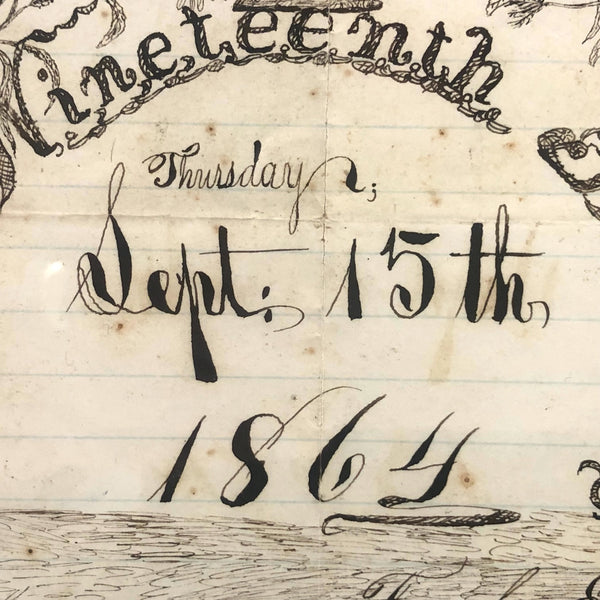 Nineteenth
Thursday,
Sept: 15th,
1864